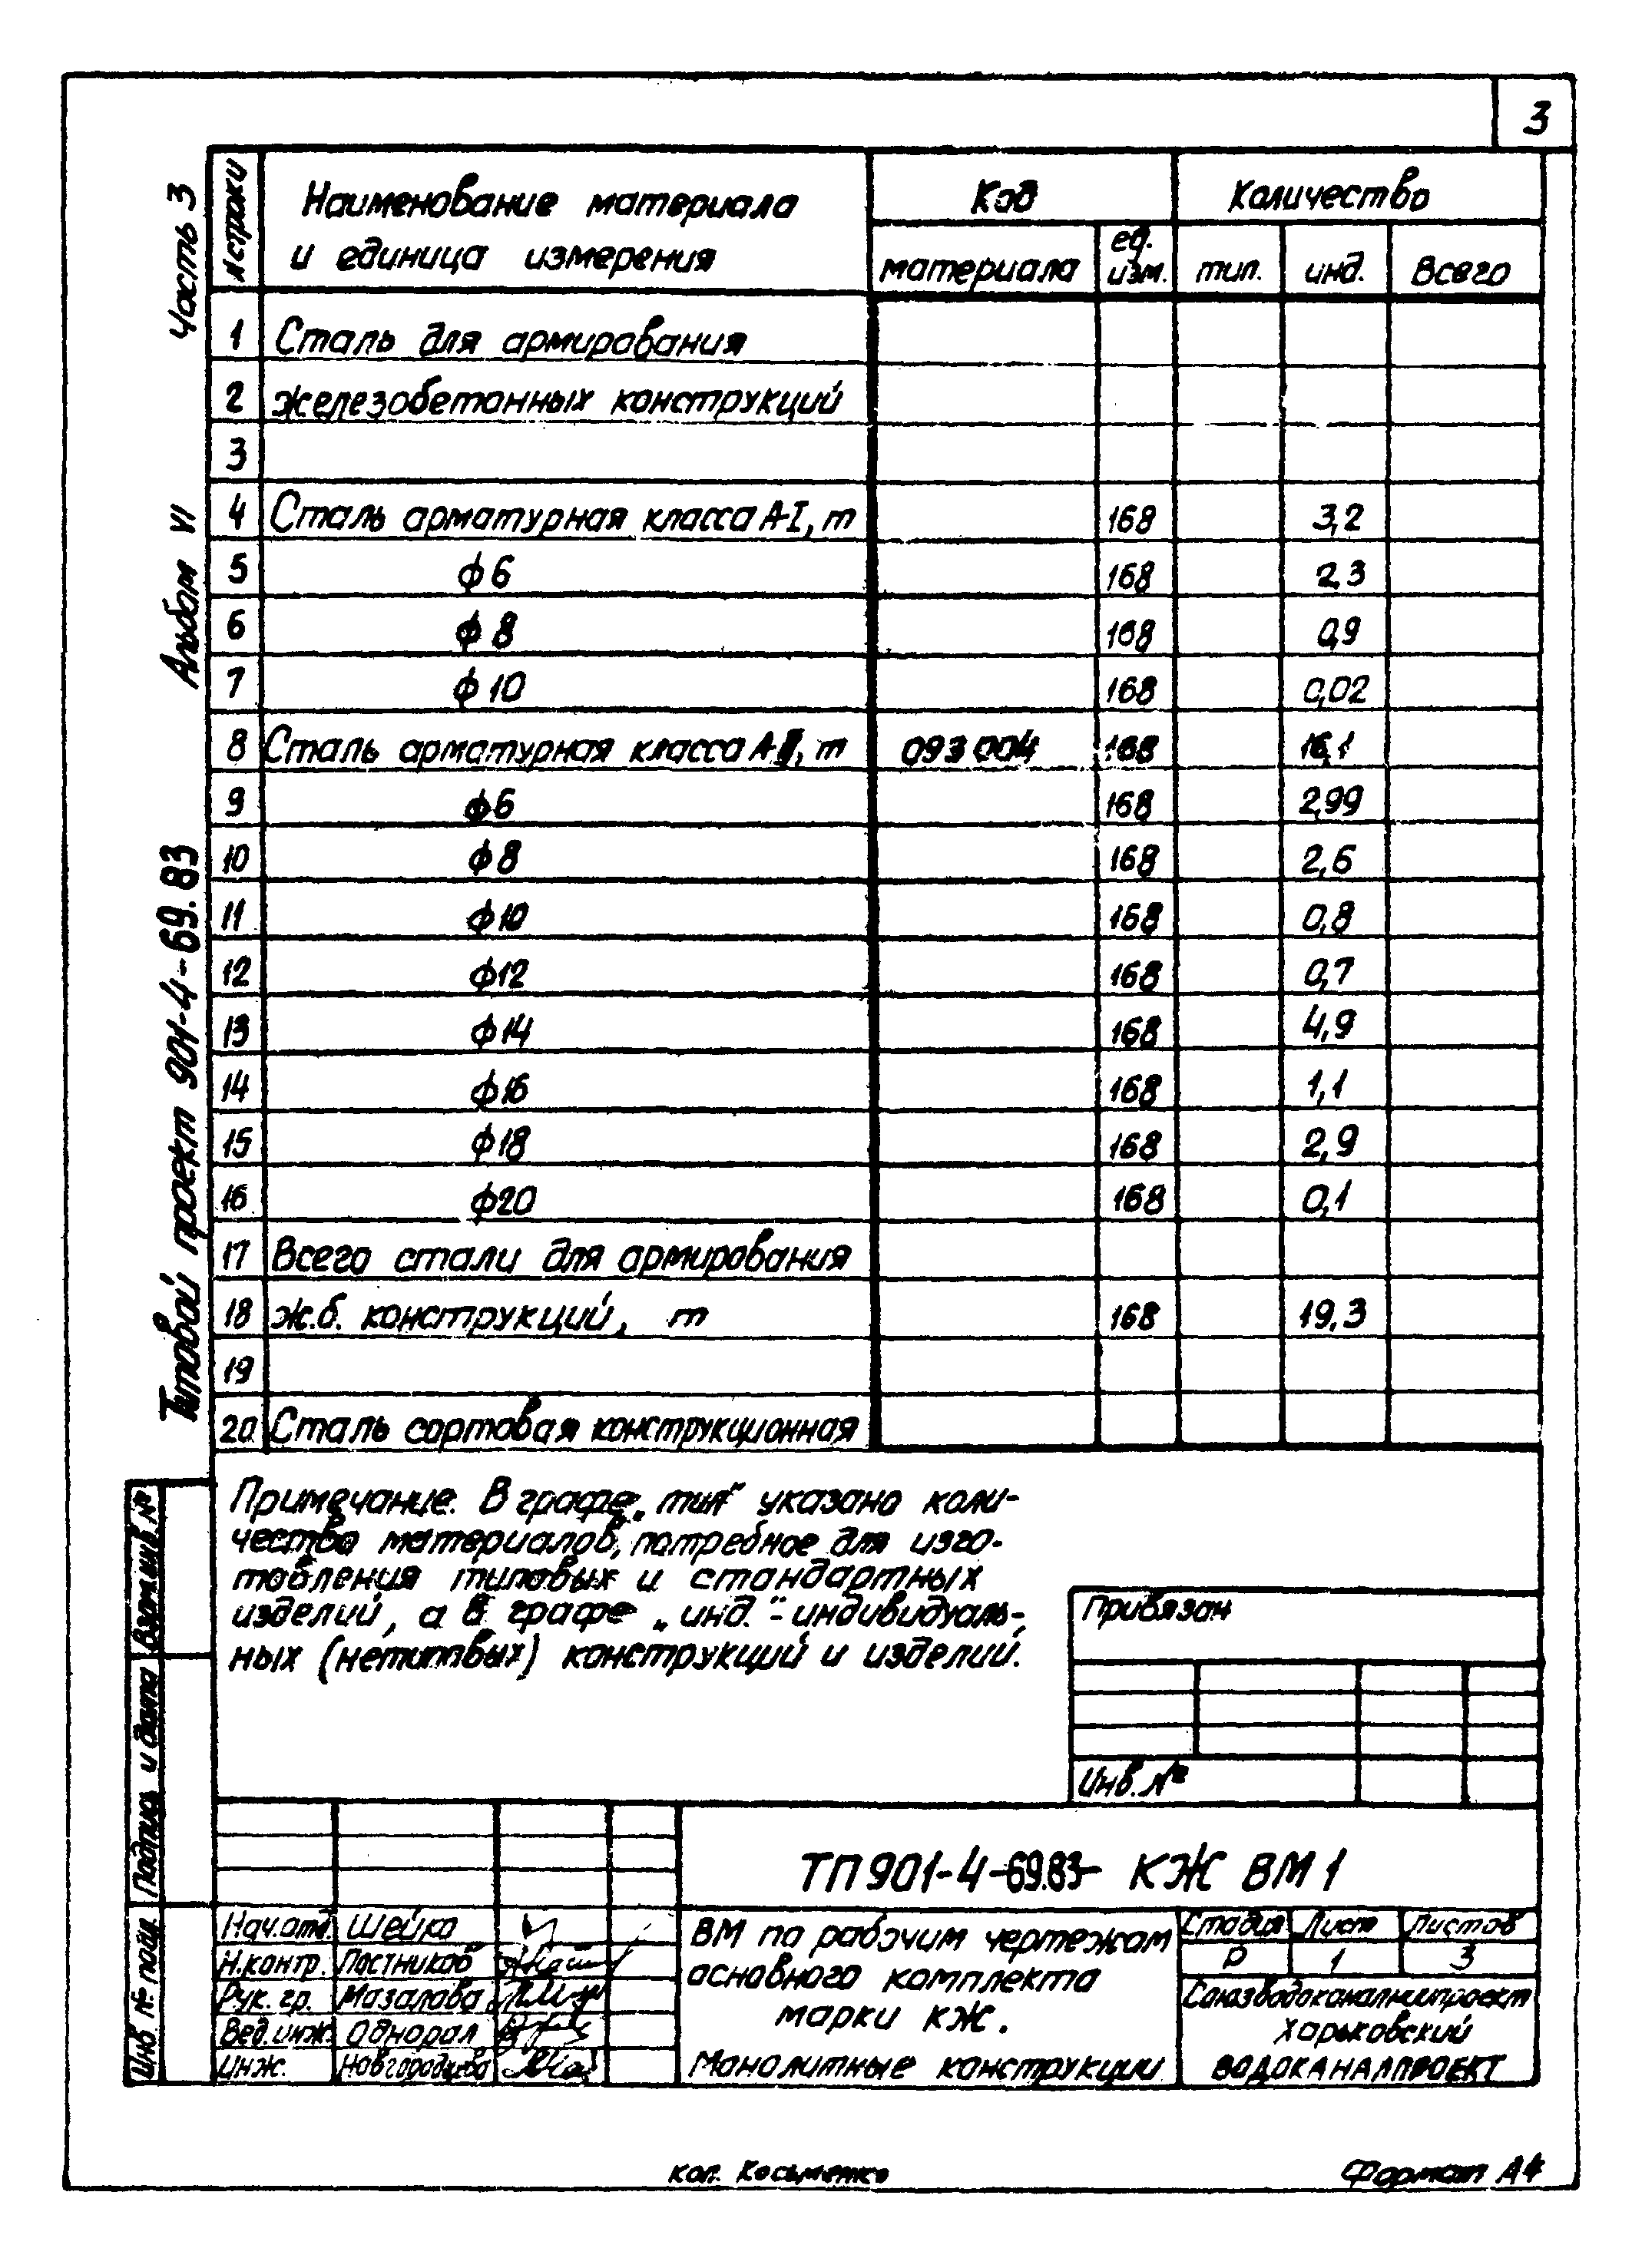 3
Часть 3
Альбом VI
Типовой проект 901-4-69.83
№ строки
Наименование материала
и единица измерения
Код
материала
ед.
изм.
Количество
тип.
инд.
Всего
1 Сталь для армирования
2 железобетонных конструкций
3
4 Сталь арматурная класса А-I, т 168 3,2
5 ф 6 168 2,3
6 ф 8 168 0,9
7 ф 10 168 0,02
8 Сталь арматурная класса А-III, т 093 004 168 16,1
9 ф6 168 2,99
10 ф8 168 2,6
11 ф10 168 0,8
12 ф12 168 0,7
13 ф14 168 4,9
14 ф16 168 1,1
15 ф18 168 2,9
16 ф20 168 0,1
17 Всего стали для армирования
18 ж.б. конструкций, т 168 19,3
19
20 Сталь сортовая конструкционная
Примечание. В графе „тип“ указано коли-
чество материалов, потребное для изго-
товления типовых и стандартных
изделий, а в графе „инд.“ - индивидуаль-
ных (нетиповых) конструкций и изделий.
Привязан
Инв. №
Взам.инв.№
Подпись и дата
Инв № подл.
ТП 901-4-69.83- КЖ ВМ 1
Нач.отд. Шейко
Н.контр. Постников
Рук. гр. Мазалова
Вед.инж. Однорал
Инж. Новгородцева
ВМ по рабочим чертежам
основного комплекта
марки КЖ.
Монолитные конструкции
Стадия Лист Листов
Р 1 3
Союзводоканалниипроект
Харьковский
ВОДОКАНАЛПРОЕКТ
кол. Косьменко
Формат А4